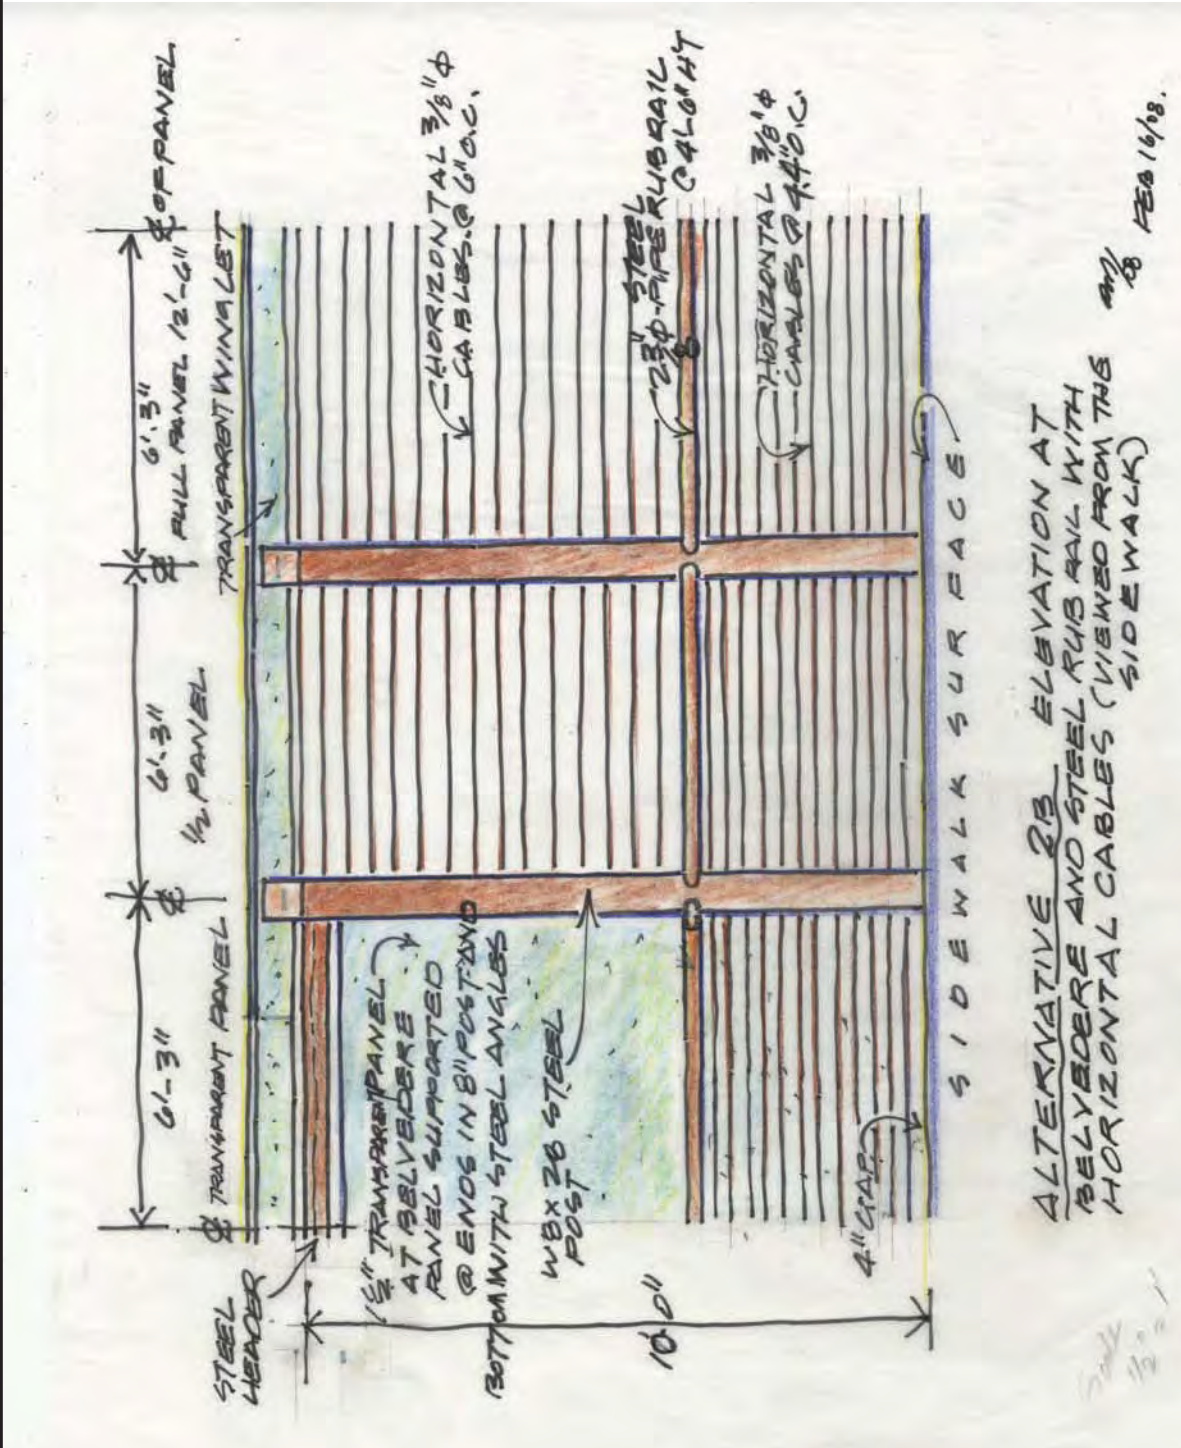 6'-3"
6'-3"
6'-3"
TRANSPARENT PANEL
1/2 PANEL
FULL PANEL 12'-6"
℄ OF PANEL
TRANSPARENT WINGLET
STEEL
HEADER
1½" TRANSPARENT PANEL
AT BELVEDERE
PANEL SUPPORTED
@ ENDS IN 8" POST AND
BOTTOM WITH STEEL ANGLES
W8 x 28 STEEL
POST
10'-0"
4" GAP
HORIZONTAL 3/8" Φ
CABLES @ 6" O.C.
STEEL
PIPE RUBRAIL
@ 4'-6" HT
HORIZONTAL 3/8" Φ
CABLES @ 4.4" O.C.
SIDEWALK SURFACE
ALTERNATIVE 2B ELEVATION AT
BELVEDERE AND STEEL RUB RAIL WITH
HORIZONTAL CABLES (VIEWED FROM THE
SIDEWALK)
FEB 16/08.